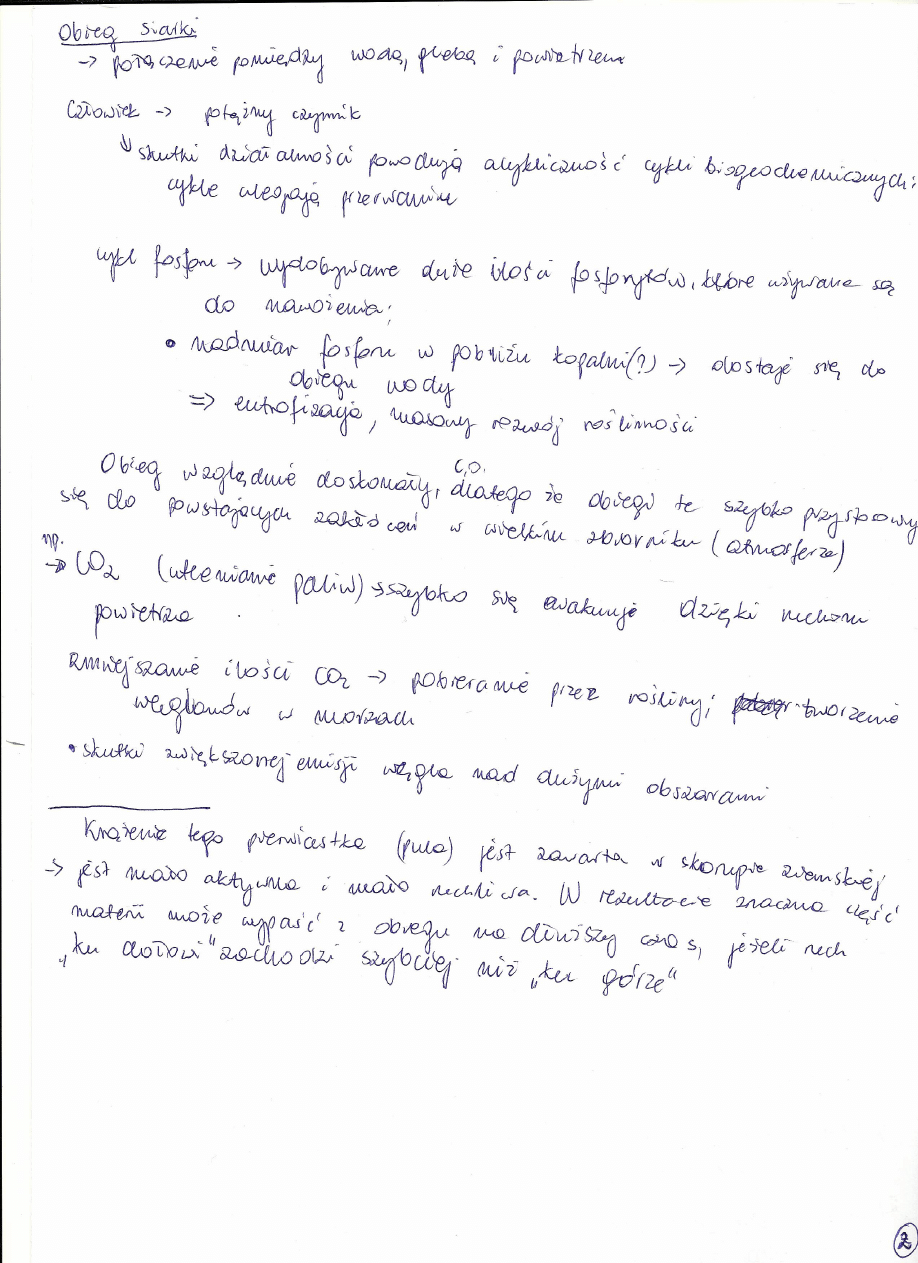 Obieg siarki
-> połączenie pomiędzy wodą, glebą i powietrzem
Człowiek -> potężny czynnik
↓ skutki działalności powodują acykliczność cykli biogeochemicznych:
cykle ulegają przerwaniu
cykl fosforu -> wydobywane duże ilości fosforytów, które używane są
do nawożenia;
• nadmiar fosforu w pobliżu kopalni(?) -> dostaje się do
obiegu wody
=> eutrofizacja, masowy rozwój roślinności
C,O.
Obieg względnie doskonały, dlatego że obiegi te szybko przystosowy
się do powstających zakłóceń w wielkim zbiorniku (atmosferze)
np.
-> CO2 (utlenianie paliw) -> szybko się ewakuuje dzięki ruchom
powietrza
Zmniejszanie ilości CO2 -> pobieranie przez rośliny; tworzenie
węglanów w morzach
• skutki zwiększonej emisji węgla nad dużymi obszarami
Krążenie tego pierwiastka (pula) jest zawarta w skorupie ziemskiej
-> jest mało aktywna i mało ruchliwa. W rezultacie znaczna część
materii może wypaść z obiegu na dłuższy czas, jeżeli ruch
„ku dołowi" zachodzi szybciej niż „ku górze"
2